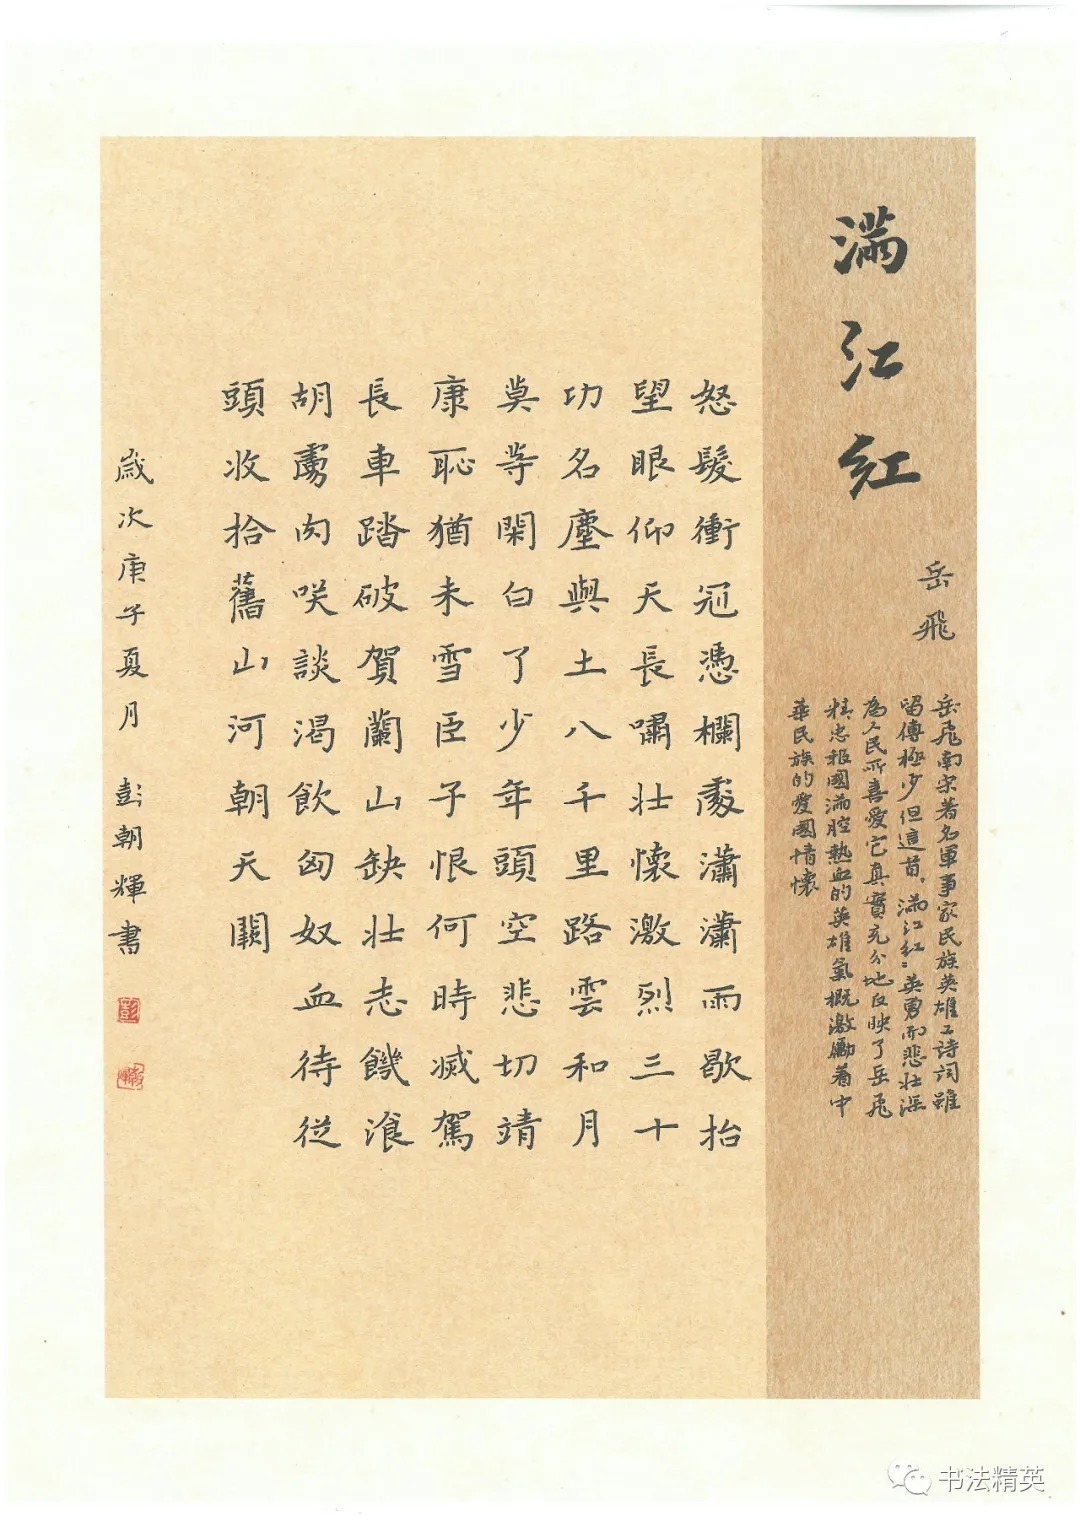 滿江紅
岳飛
岳飛南宋著名軍事家民族英雄之詩詞雖
留傳極少但這首滿江紅英勇而悲壯深
為人民所喜愛它真實充分地反映了岳飛
精忠報國滿腔熱血的英雄氣概激勵着中
華民族的愛國情懷
怒髮衝冠憑欄處瀟瀟雨歇抬
望眼仰天長嘯壯懷激烈三十
功名塵與土八千里路雲和月
莫等閑白了少年頭空悲切靖
康恥猶未雪臣子恨何時滅駕
長車踏破賀蘭山缺壯志饑飡
胡虜肉笑談渴飲匈奴血待從
頭收拾舊山河朝天闕
歲次庚子夏月 彭朝輝書
彭
书法精英